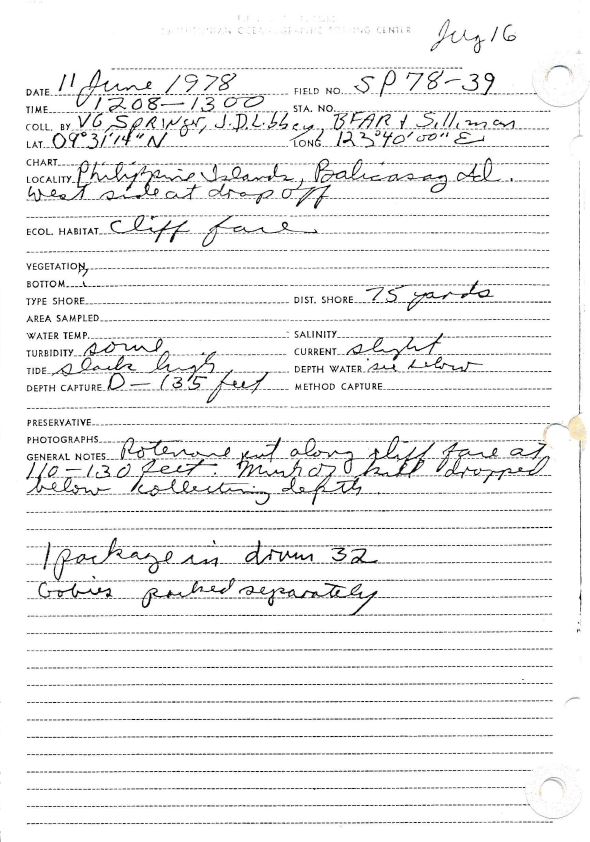 SMITHSONIAN OCEANOGRAPHIC SORTING CENTER
Jug 16
DATE 11 June 1978 FIELD NO. SP78-39
TIME 1208-1300 STA. NO.
COLL. BY VG Springer, J.D. Libbey, BFAR & Silliman
LAT. 09°31'14"N LONG. 123°40'00" E
CHART
LOCALITY Philippine Islands, Balicasag Id.
West side at drop off
ECOL. HABITAT cliff face
VEGETATION
BOTTOM
TYPE SHORE DIST. SHORE 75 yards
AREA SAMPLED
WATER TEMP. SALINITY
TURBIDITY some CURRENT slight
TIDE slack high DEPTH WATER see below
DEPTH CAPTURE 0-135 feet METHOD CAPTURE
PRESERVATIVE
PHOTOGRAPHS
GENERAL NOTES Rotenone put along cliff face at
110-130 feet. Much of kill dropped
below collecting depth.
1 package in drum 32
Gobies packed separately